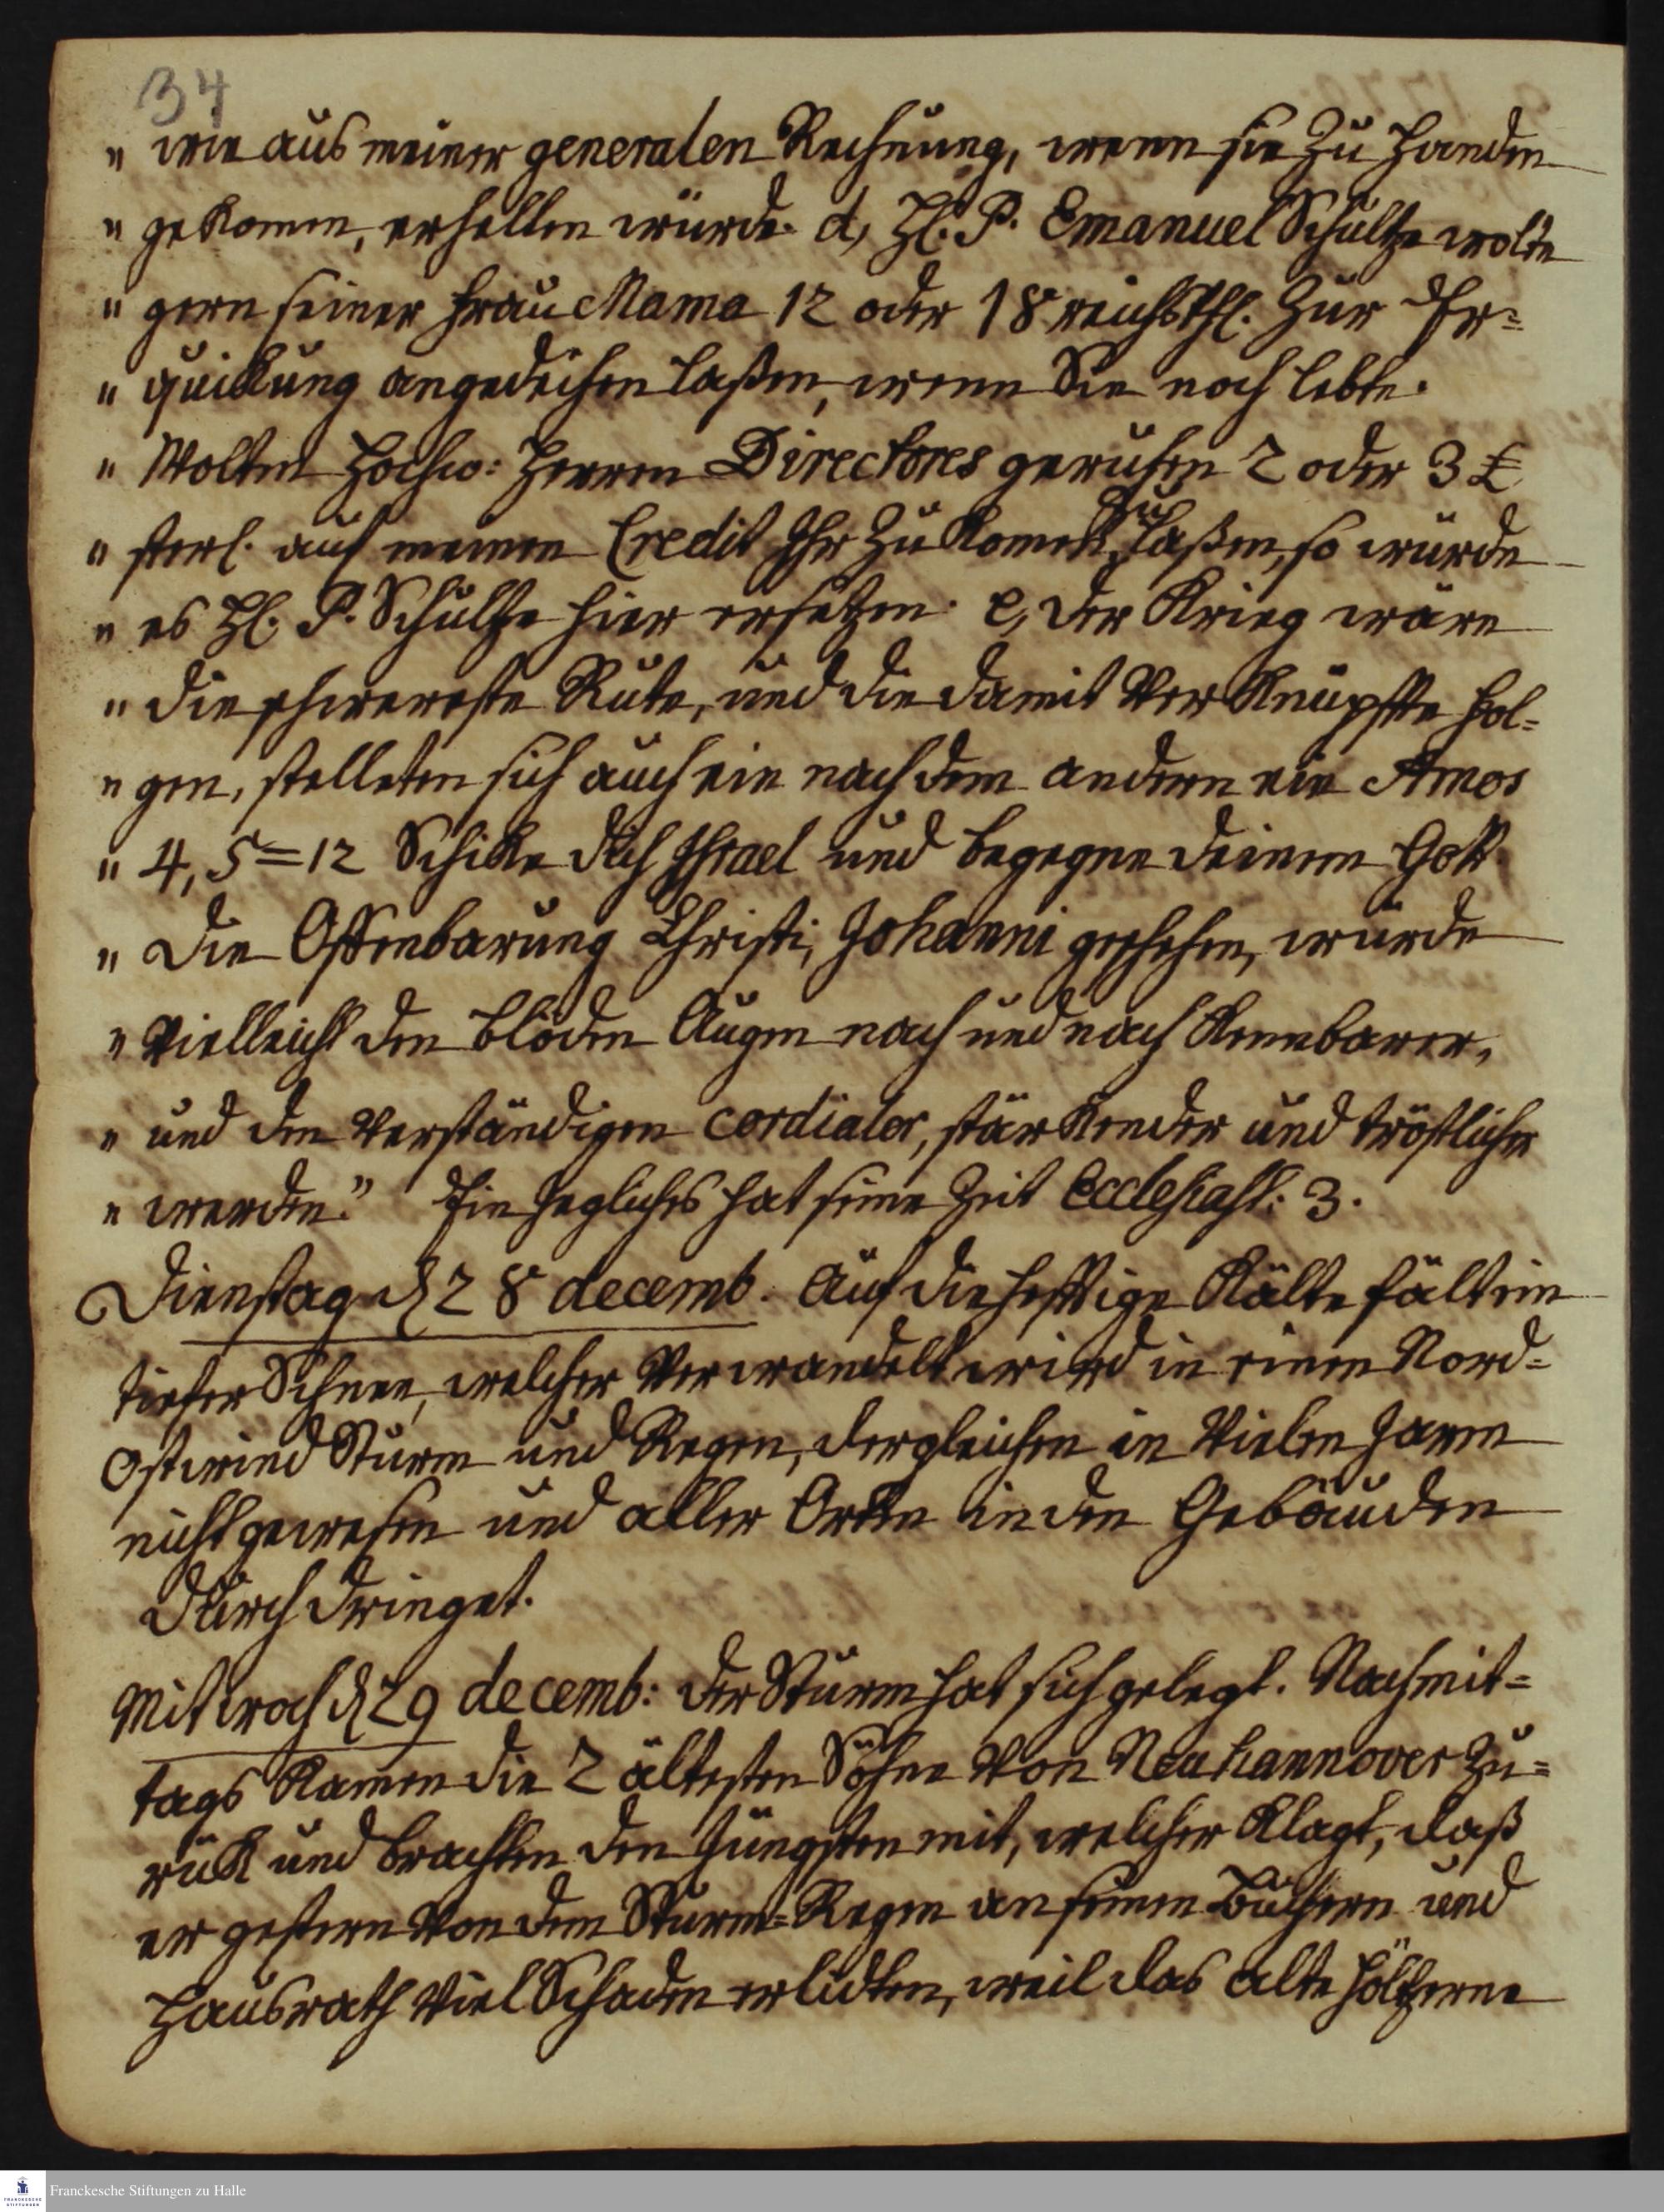 34
" wie aus meiner generalen Rechnung, wenn sie zu Handen
" gekomen, erhellen würde. d, HE. P. Emanuel Schultze wolte
" gern seiner Frau Mama 12 oder 18 reichsthl. zur Er=
" quickung angedeihen laßen, wenn Sie noch lebte.
" Wolten Hochw: Herren Directores geruhen 2 oder 3 £
" sterl. auf meinen Credit Ihr zukomen zu laßen, so würde
" es HE. P. Schultze hier ersetzen. e, der Krieg wäre
" die schwereste Rute, und die damit verknüpfte Fol=
" gen, stelleten sich auch ein nach dem andern ein Amos
" 4, 5=12 Schicke dich Israel und begegne deinem Gott
" Die Offenbarung Christi, Johanni geschehen, würde
" vielleicht den blöden Augen nach und nach kennbarer,
" und den Verständigen cordialer, stärkender und tröstlicher
" werden." Ein jegliches hat seine Zeit Ecclesiast: 3.
Dienstag d 28 decemb. Auf die hefftige Kälte fält ein
tiefer Schnee, welcher verwandelt wird in einen Nord=
ostwind Sturm und Regen, dergleichen in vielen Jaren
nicht gewesen und aller Orten in den Gebäuden
durchdringet.
Mittwoch d 29 decemb: der Sturm hat sich gelegt. Nachmit=
tags kamen die 2 ältesten Söhne von Neuhannover zu=
rük und brachten den Jüngsten mit, welcher klagt, daß
er gestern von dem Sturm=Regen an seinen Büchern und
Hausrath viel Schaden erlidten, weil das alte höltzerne
Franckesche Stiftungen zu Halle